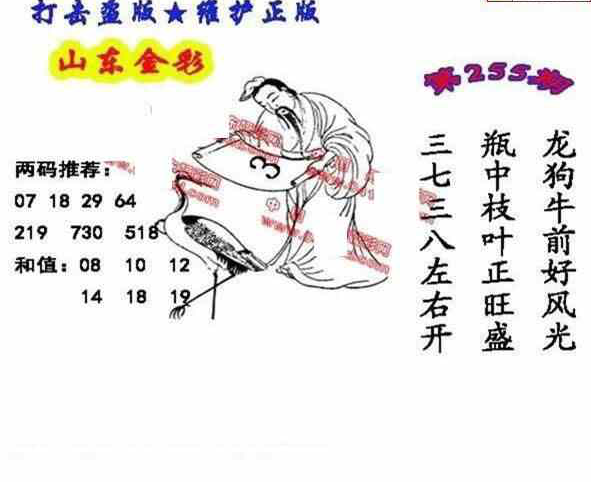 打击盗版★维护正版
山东金彩
第255期
两码推荐:
07 18 29 64
219 730 518
和值: 08 10 12
14 18 19
3
龙狗牛前好风光
瓶中枝叶正旺盛
三七三八左右开